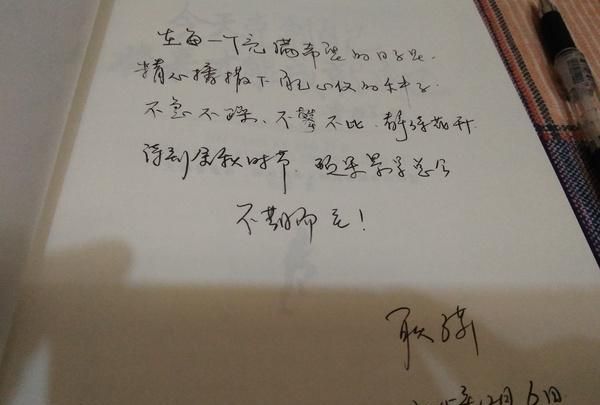 在每一个充满希望的日子里.
精心播撒下自己心仪的种子.
不急不躁、不攀不比.静待花开.
待到金秋时节.硕果累累总会
不期而至!
12月6日